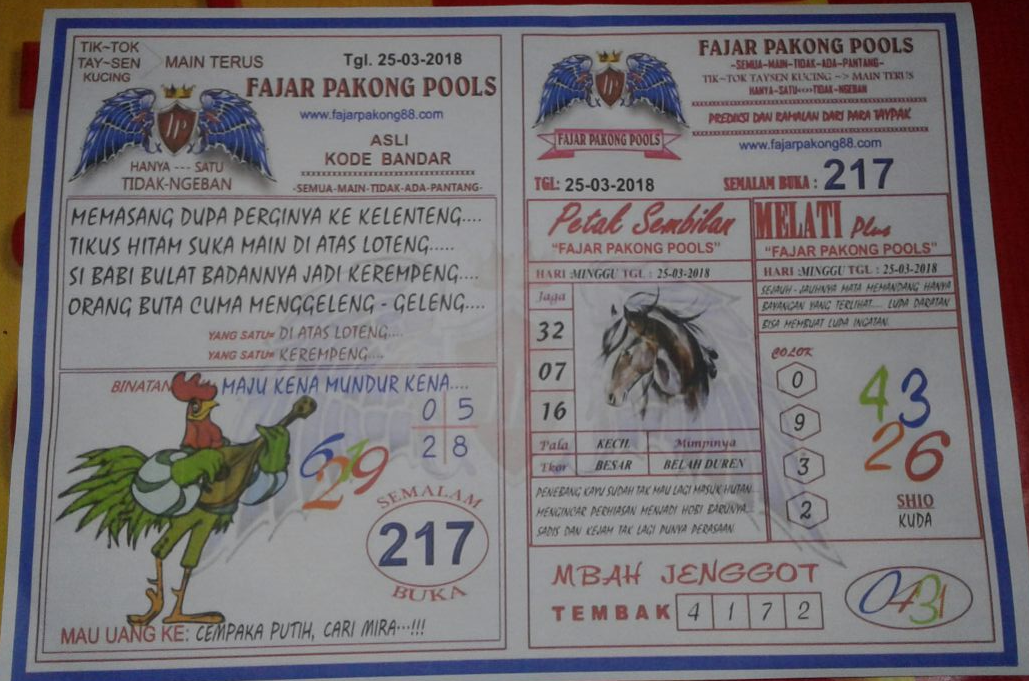 TIK~TOK
TAY~SEN
KUCING
MAIN TERUS
Tgl. 25-03-2018
FAJAR PAKONG POOLS
www.fajarpakong88.com
ASLI
KODE BANDAR
HANYA --- SATU
TIDAK-NGEBAN
-SEMUA-MAIN-TIDAK-ADA-PANTANG-
MEMASANG DUPA PERGINYA KE KELENTENG....
TIKUS HITAM SUKA MAIN DI ATAS LOTENG.....
SI BABI BULAT BADANNYA JADI KEREMPENG....
ORANG BUTA CUMA MENGGELENG - GELENG....
YANG SATU= DI ATAS LOTENG....
YANG SATU= KEREMPENG....
BINATAN MAJU KENA MUNDUR KENA....
0 5
2 8
6219
SEMALAM
217
BUKA
MAU UANG KE: CEMPAKA PUTIH, CARI MIRA...!!!
FAJAR PAKONG POOLS
~SEMUA-MAIN-TIDAK-ADA-PANTANG-
TIK~TOK TAYSEN KUCING ~> MAIN TERUS
HANYA-SATU<<>>TIDAK-NGEBAN
PREDIKSI DAN RAMALAN DARI PARA TAYPAK
www.fajarpakong88.com
FAJAR PAKONG POOLS
TGL: 25-03-2018
SEMALAM BUKA : 217
Petak Sembilan
"FAJAR PAKONG POOLS"
HARI :MINGGU TGL : 25-03-2018
Jaga
32
07
16
Pala KECIL Mimpinya
Ekor BESAR BELAH DUREN
PENEBANG KAYU SUDAH TAK MAU LAGI MASUK HUTAN
MENGINCAR PERHIASAN MENJADI HOBI BARUNYA...
SADIS DAN KEJAM TAK LAGI PUNYA PERASAAN
MELATI Plus
"FAJAR PAKONG POOLS"
HARI :MINGGU TGL : 25-03-2018
SEJAUH - JAUHNYA MATA MEMANDANG HANYA
BAYANGAN YANG TERLIHAT.... LUPA DARATAN
BISA MEMBUAT LUPA INGATAN.
COLOK
0
9
3
2
43
26
SHIO
KUDA
MBAH JENGGOT
TEMBAK 4 1 7 2
0431